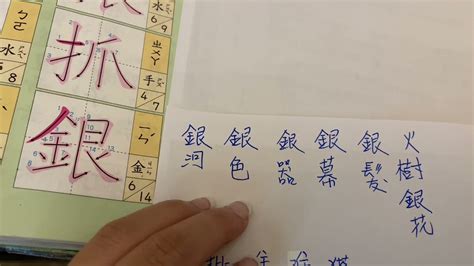 水
6
9
抓
ㄓㄨㄚ
手
4
7
銀
ㄧㄣˊ
金
6
14
銀河
銀色
銀器
銀幕
銀髮
火樹銀花